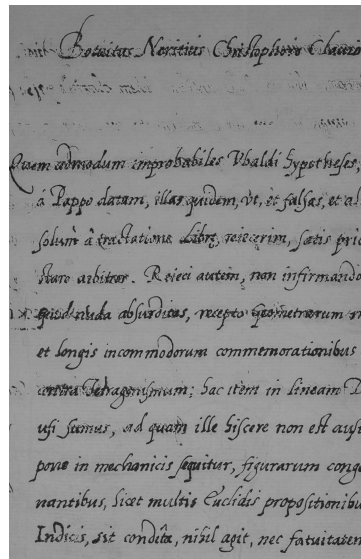 Botvitus Nericius Christophoro Clavio
Quem admodum improbabiles Vbaldi hypotheses,
a Pappo datam, illas quidem, vt, et falsas, et al
solum à tractatione Libre, reiecerim, satis
arbitror. Reieci autem, non infirmando
quod nuda absurditas, recepto Geometrarum m
et longis incommodorum commemorationibus
contra Tetragonismum; hac item in lineam D
usi sumus, ad quam ille hiscere non est ausu
pone in mechanicis sequitur, figurarum cong
nantibus, licet multis Euclidis propositionibu
Indicis, sit condita, nihil agit, nec fatuitatem